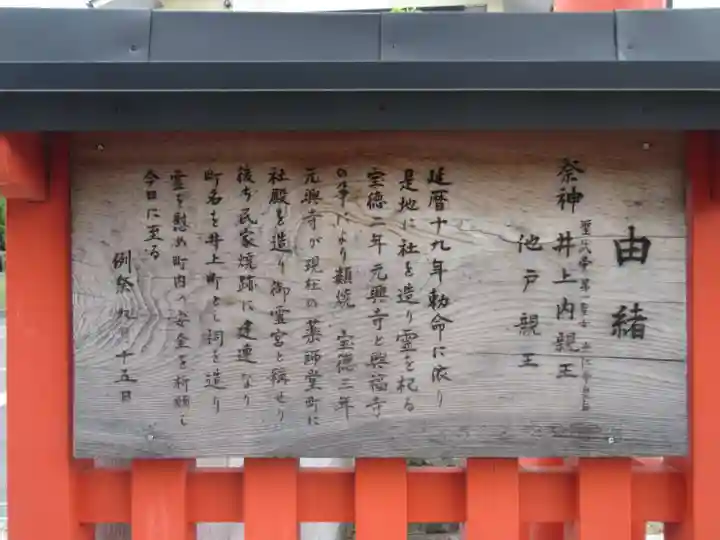 由緒
祭神 井上内親王
池戸親王
延暦十九年勅命に依り
是地に社を造り霊を祀る
宝徳二年元興寺と興福寺
の争により類焼 宝徳三年
元興寺が現在の薬師堂町に
社殿を造り御霊宮と称せり
後ち民家焼跡に建連なり
町名を井上町とし祠を造り
霊を慰め町内の安全を祈願し
今日に至る
例祭 九月十五日